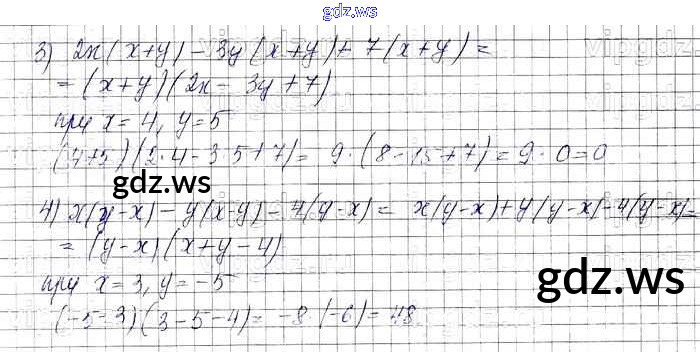 gdz.ws
3) 2x(x+y) - 3y(x+y) + 7(x+y) =
= (x+y)(2x - 3y + 7)
при x = 4, y = 5
(4+5)(2·4 - 3·5 + 7) = 9·(8 - 15 + 7) = 9·0 = 0
gdz.ws
4) x(y-x) - y(x-y) - 4(y-x) = x(y-x) + y(y-x) - 4(y-x) =
= (y-x)(x+y-4)
gdz.ws
при x = 3, y = -5
(-5-3)(3-5-4) = -8·(-6) = 48
gdz.ws